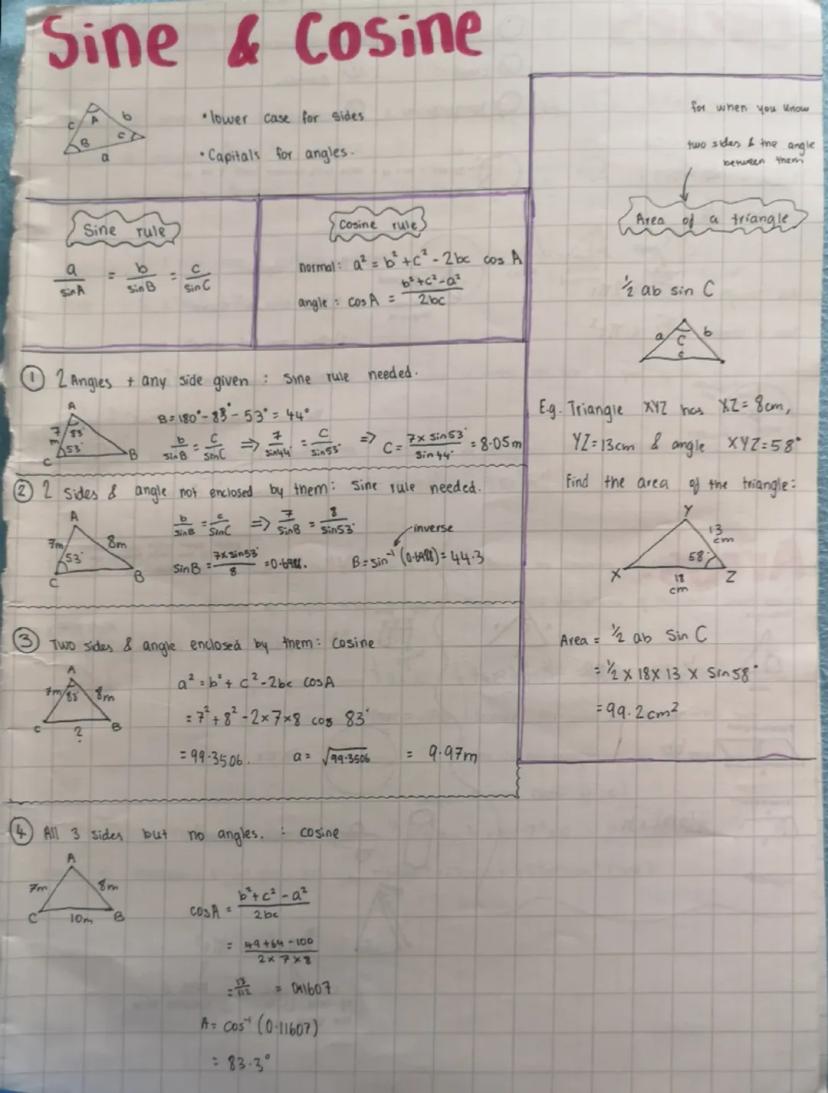 Sine & Cosine
A
b
c
B
C
a
• lower case for sides
• Capitals for angles.
Sine rule
a/sinA = b/sinB = c/sinC
Cosine rule
normal: a² = b² + c² - 2bc cos A
angle: cosA = b²+c²-a²/2bc
① 2 Angles + any side given : sine rule needed.
A
7m
83°
53°
C
B
B = 180° - 83° - 53° = 44°
b/sinB = c/sinC => 7/sin44° = c/sin53° => C = 7 x sin53°/sin44° = 8.05m
② 2 sides & angle not enclosed by them: sine rule needed.
A
7m
8m
53°
C
B
b/sinB = c/sinC => 7/sinB = 8/sin53°
inverse
sinB = 7x sin53°/8 = 0.6988.
B = sin⁻¹ (0.6988) = 44.3
③ Two sides & angle enclosed by them: cosine
A
7m
83°
8m
C
B
?
a² = b² + c² - 2bc cosA
= 7² + 8² - 2 x 7 x 8 cos 83°
= 99.3506.
a = √99.3506 = 9.97m
④ All 3 sides but no angles. : cosine
A
7m
8m
C
10m
B
cosA = b²+c²-a²/2bc
= 49+64-100/2x 7 x 8
= 13/112 = 0.11607
A = cos⁻¹ (0.11607)
= 83.3°
for when you know
two sides & the angle
between them
Area of a triangle
½ ab sin C
a
b
C
c
E.g. Triangle XYZ has XZ = 8cm,
YZ = 13cm & angle XYZ = 58°
Find the area of the triangle:
Y
13
cm
58°
X
Z
18
cm
Area = ½ ab Sin C
= ½ x 18 x 13 x Sin 58°
= 99.2 cm²